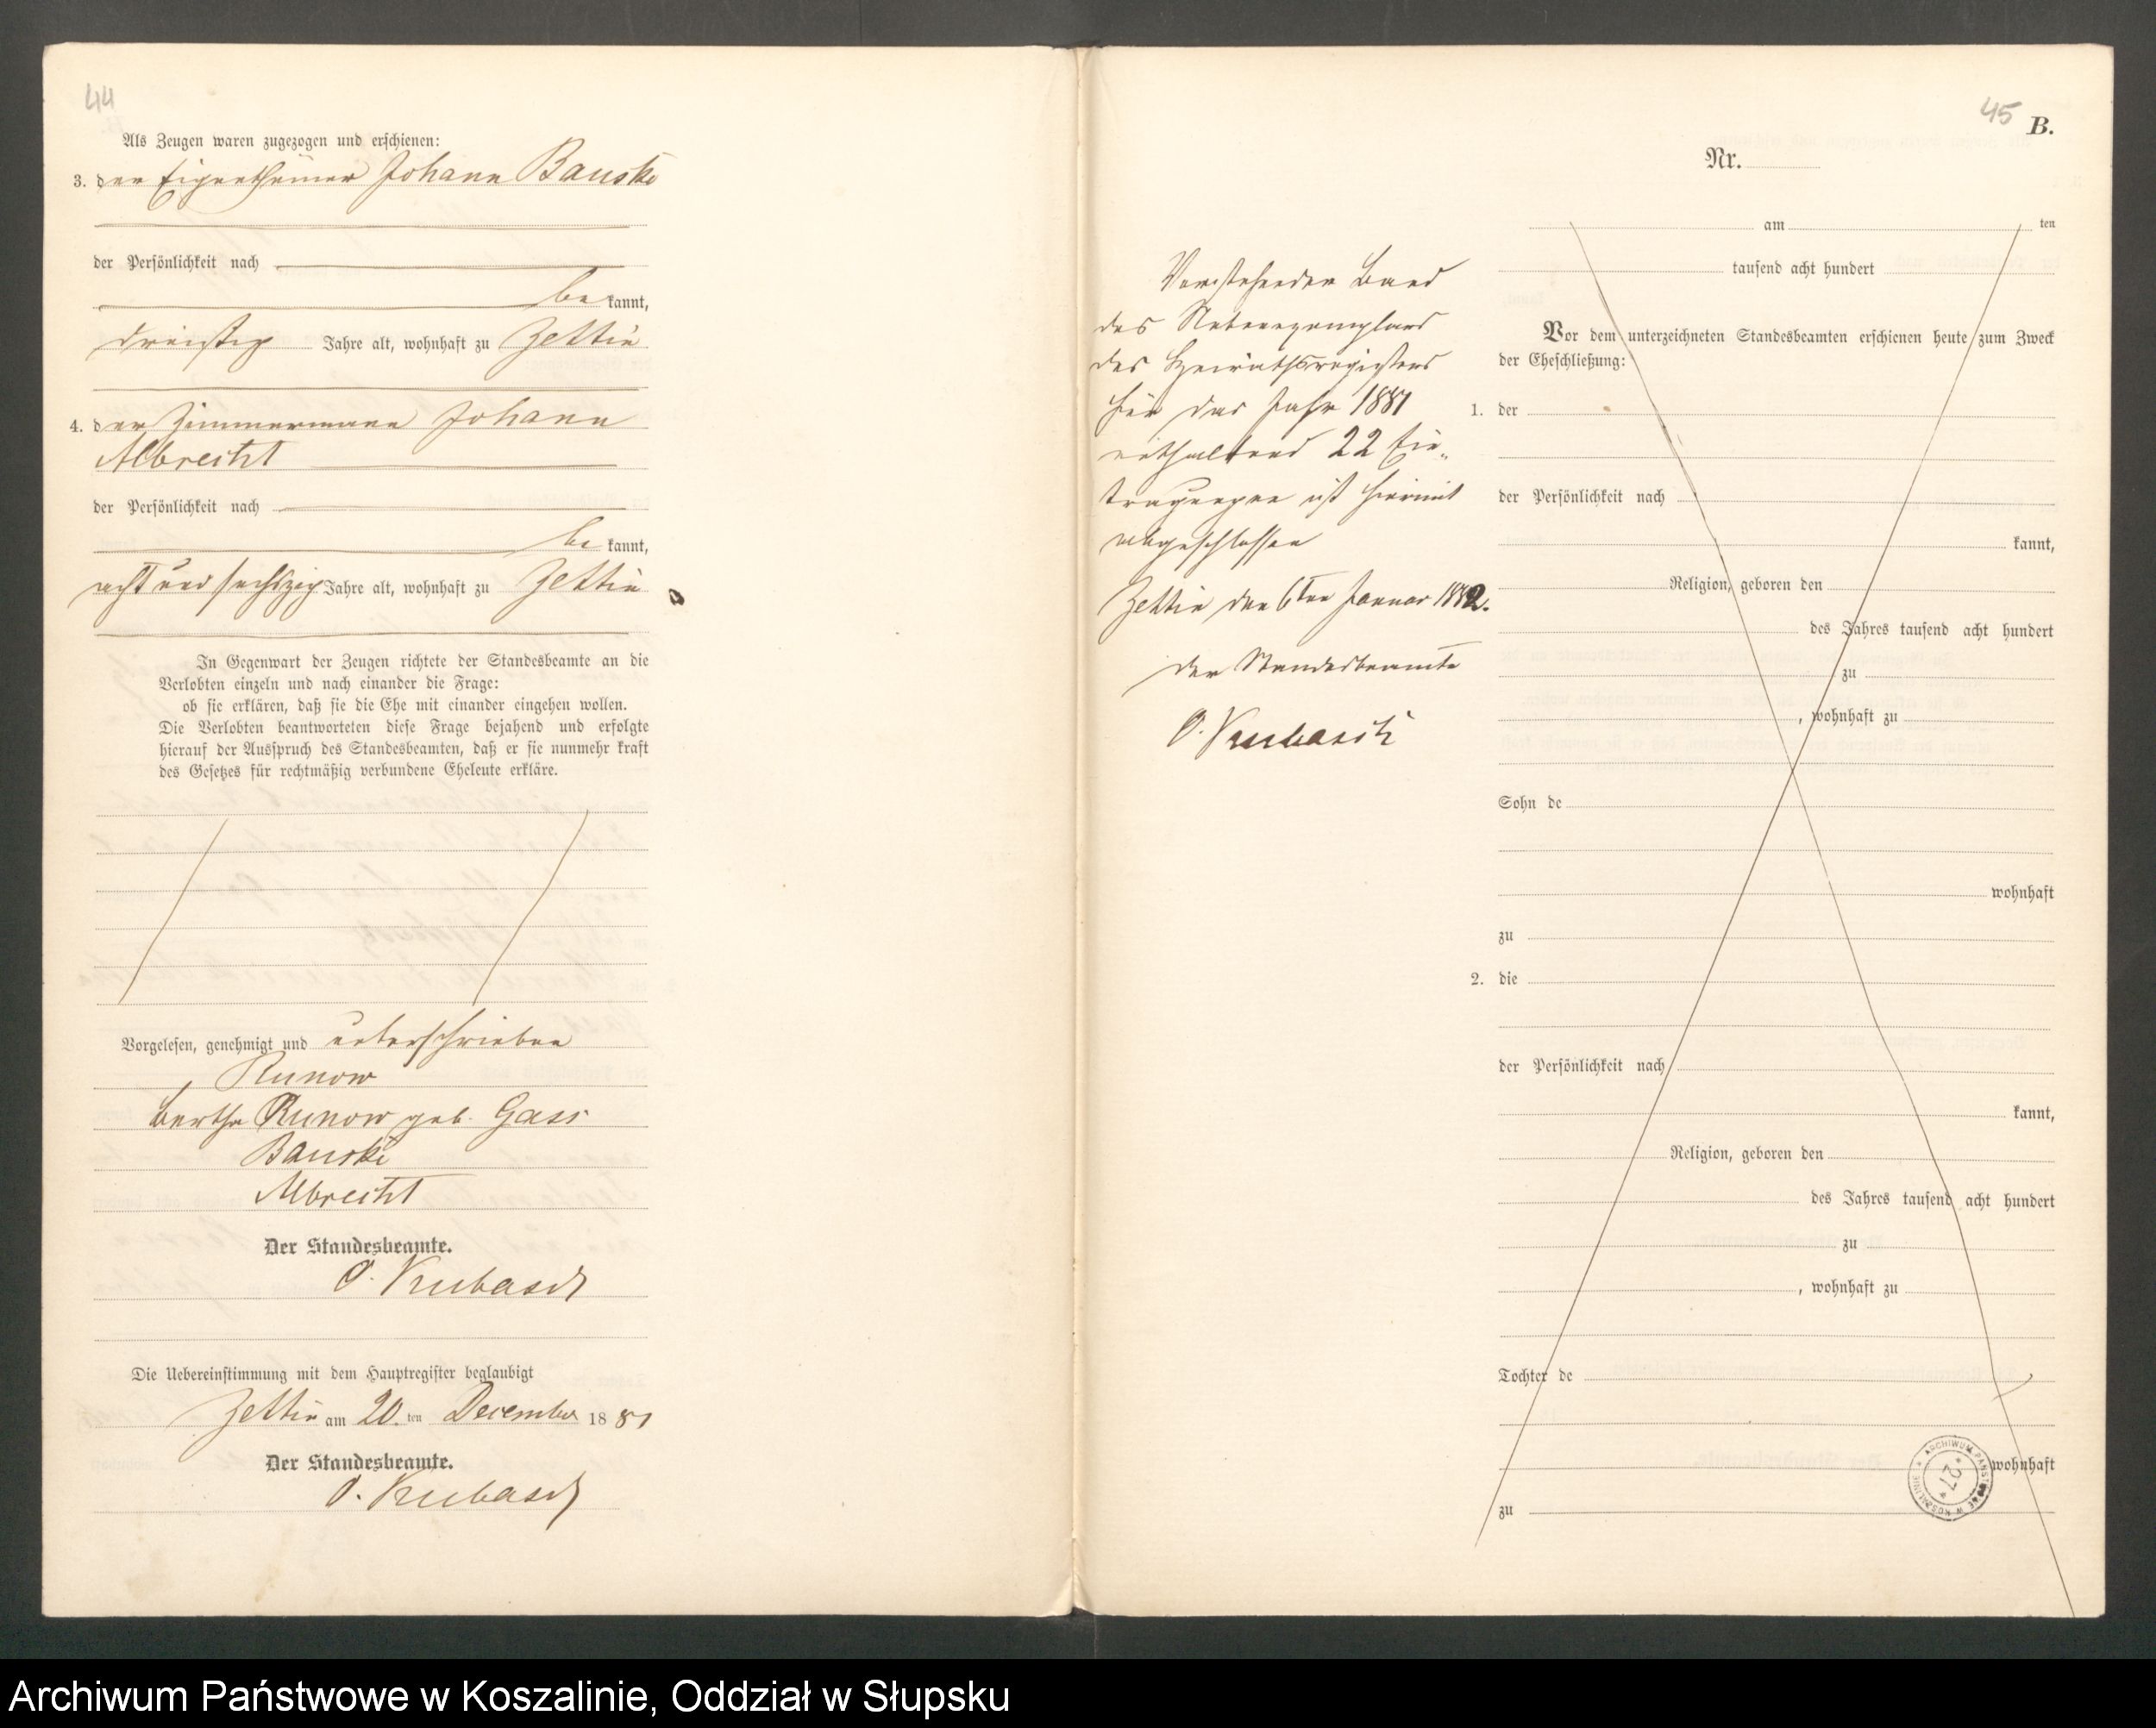 44
Als Zeugen waren zugezogen und erschienen:
3. der Eigenthümer Johann Banske
der Persönlichkeit nach
bekannt,
dreißig Jahre alt, wohnhaft zu Zettin
4. der Zimmermann Johann
Albrecht
der Persönlichkeit nach
bekannt,
acht und sechszig Jahre alt, wohnhaft zu Zettin
In Gegenwart der Zeugen richtete der Standesbeamte an die
Verlobten einzeln und nach einander die Frage:
ob sie erklären, daß sie die Ehe mit einander eingehen wollen.
Die Verlobten beantworteten diese Frage bejahend und erfolgte
hierauf der Ausspruch des Standesbeamten, daß er sie nunmehr kraft
des Gesetzes für rechtmäßig verbundene Eheleute erkläre.
Vorgelesen, genehmigt und unterschrieben
Runow
Bertha Runow geb. Gass
Banske
Albrecht
Der Standesbeamte.
O. Krubasch
Die Uebereinstimmung mit dem Hauptregister beglaubigt
Zettin am 20. ten December 1881
Der Standesbeamte.
O. Krubasch
Vorstehender Band
des Nebenexemplars
des Heirathsregisters
für das Jahr 1881
enthaltend 22 Ein-
tragungen ist hiermit
abgeschlossen
Zettin den 6ten Januar 1882.
Der Standesbeamte
O. Krubasch
45
B.
Nr.
am ten
tausend acht hundert
Vor dem unterzeichneten Standesbeamten erschienen heute zum Zweck
der Eheschließung:
1. der
der Persönlichkeit nach
kannt,
Religion, geboren den
des Jahres tausend acht hundert
zu
, wohnhaft zu
Sohn de
wohnhaft
zu
2. die
der Persönlichkeit nach
kannt,
Religion, geboren den
des Jahres tausend acht hundert
zu
, wohnhaft zu
Tochter de
wohnhaft
zu
ARCHIWUM PAŃSTWOWE W KOSZALINIE
* 27 *
Archiwum Państwowe w Koszalinie, Oddział w Słupsku